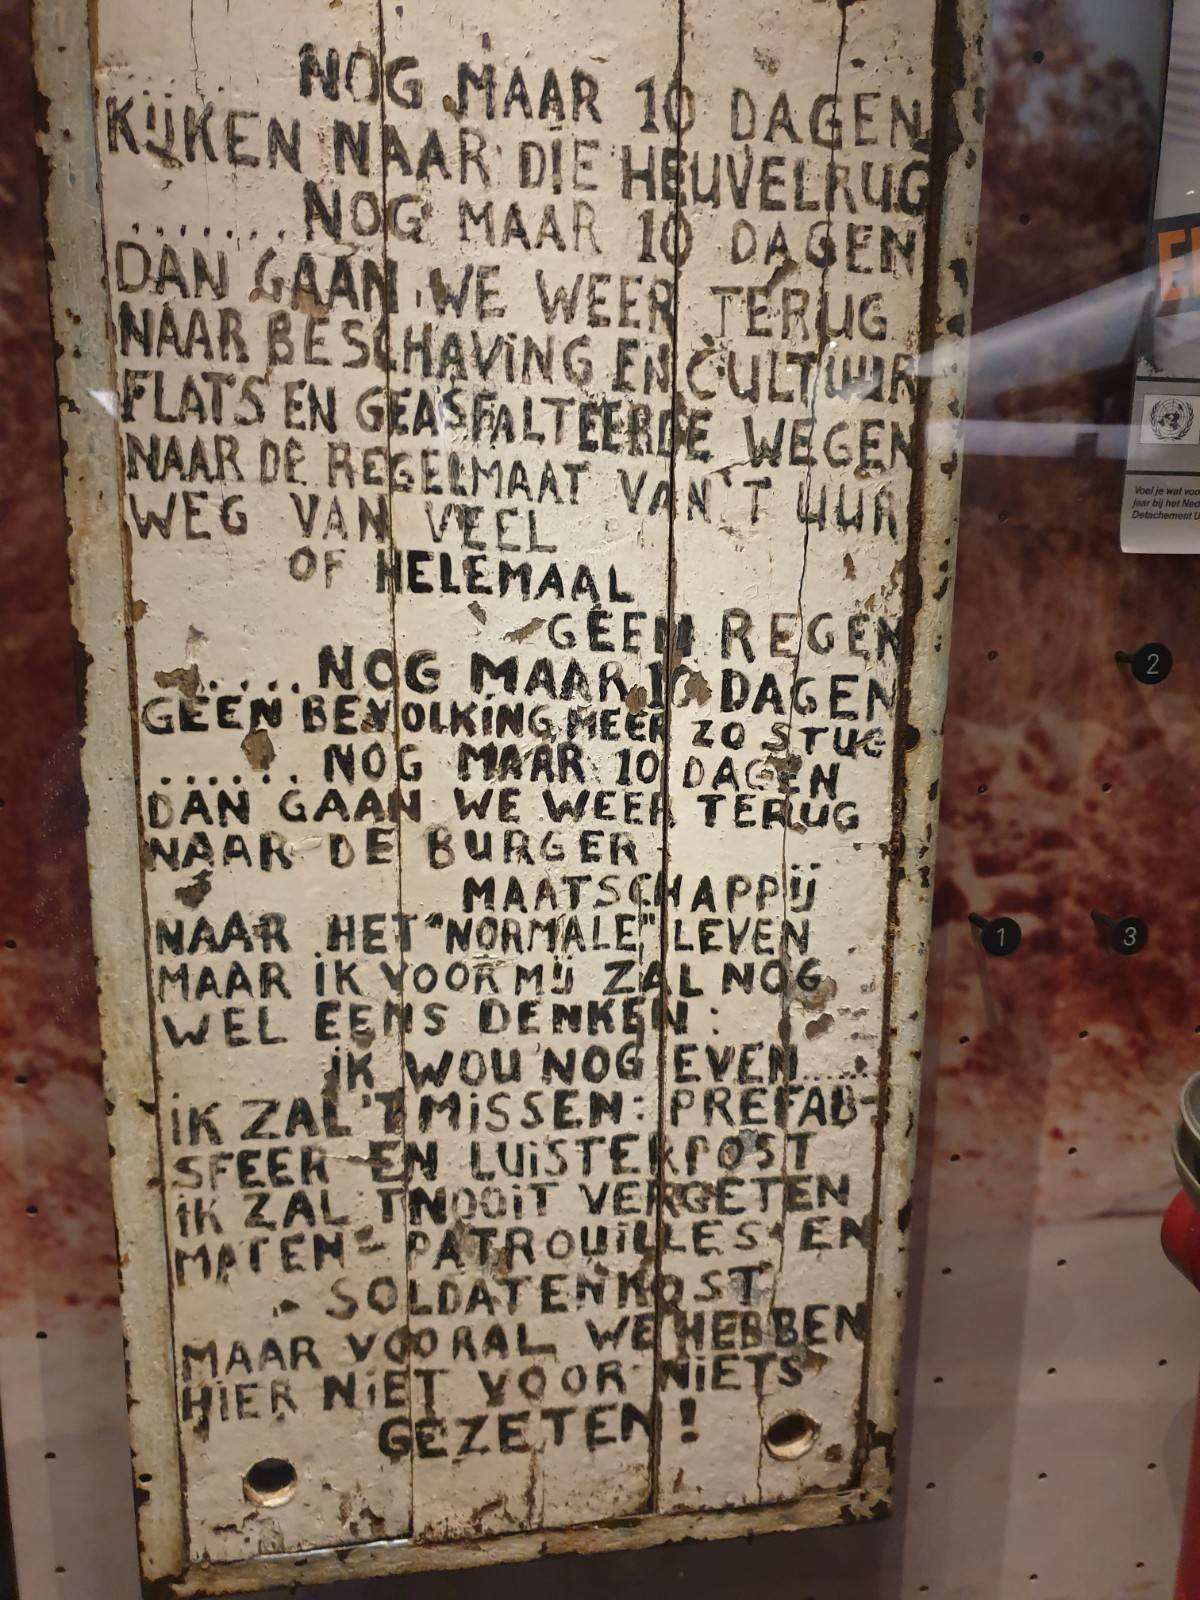 NOG MAAR 10 DAGEN
KIJKEN NAAR DIE HEUVELRUG
.......NOG MAAR 10 DAGEN
DAN GAAN WE WEER TERUG
NAAR BESCHAVING EN CULTUUR
FLATS EN GEASFALTEERDE WEGEN
NAAR DE REGELMAAT VAN 'T UUR
WEG VAN VEEL
OF HELEMAAL
GEEN REGEN
......NOG MAAR 10 DAGEN
GEEN BEVOLKING MEER ZO STUG
......NOG MAAR 10 DAGEN
DAN GAAN WE WEER TERUG
NAAR DE BURGER
MAATSCHAPPIJ
NAAR HET "NORMALE" LEVEN
MAAR IK VOOR MIJ ZAL NOG
WEL EENS DENKEN:
IK WOU NOG EVEN.....
IK ZAL 'T MISSEN: PREFAB-
SFEER EN LUISTERPOST
IK ZAL T NOOIT VERGETEN
MATEN - PATROUILLES EN
SOLDATENKOST
MAAR VOORAL WE HEBBEN
HIER NIET VOOR NIETS
GEZETEN!
Voel je wat
jaar bij het
Detachement
2
1
3